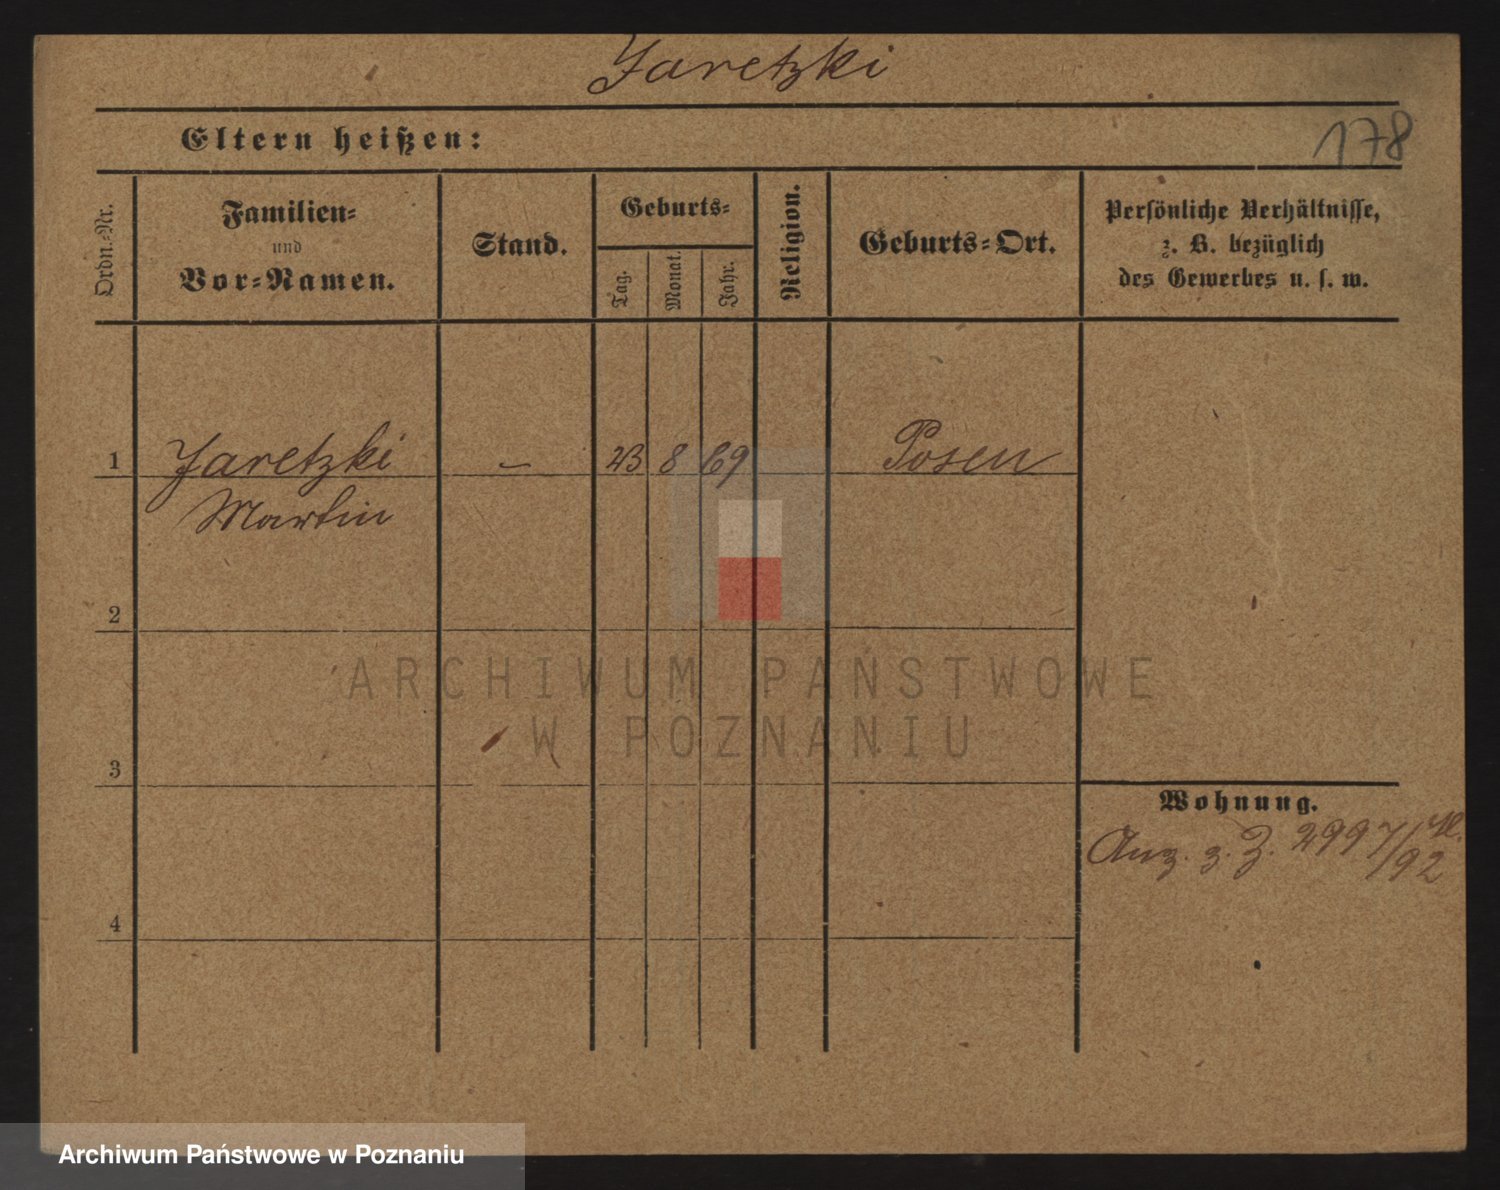 Jaretzki
178
Eltern heißen:
Ordn.-Nr.
Familien-
und
Vor-Namen.
Stand.
Geburts-
Tag.
Monat.
Jahr.
Religion.
Geburts-Ort.
Persönliche Verhältnisse,
z. B. bezüglich
des Gewerbes u. s. w.
1 Jaretzki — 23 8 69 Posen
Martin
2
3
4
Wohnung.
Anz. z. Z. 2997/92
ARCHIWUM PAŃSTWOWE
W POZNANIU
Archiwum Państwowe w Poznaniu